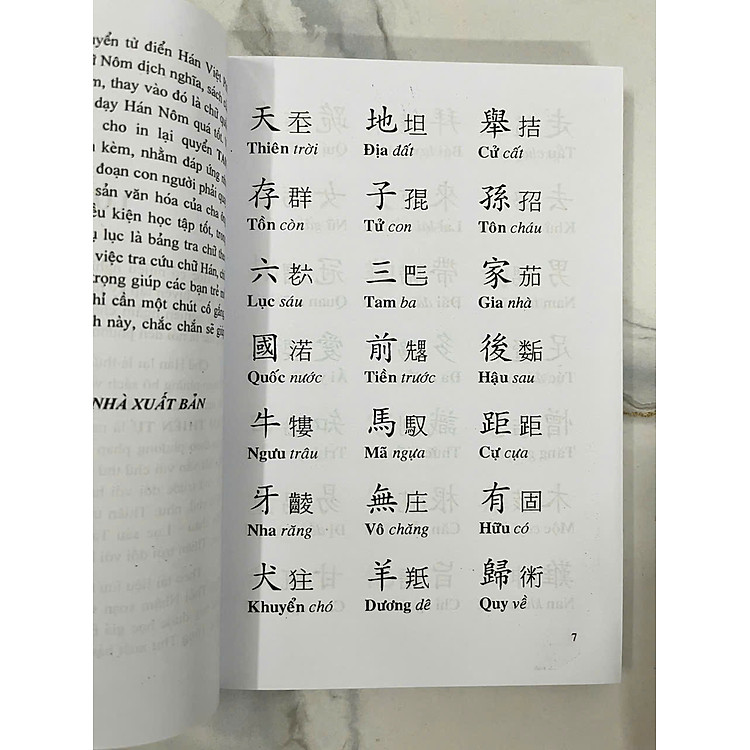 uyển từ điển Hán Việt
Nôm dịch nghĩa, sách
thay vào đó là chữ
dạy Hán Nôm quá tốt,
cho in lại quyển
kèm, nhằm đáp ứng
đoạn con người phải
sản văn hóa của cha
kiện học tập tốt,
lục là bảng tra chữ
việc tra cứu chữ Hán,
trọng giúp các bạn trẻ
hỉ cần một chút cố gắng
h này, chắc chắn sẽ
NHÀ XUẤT BẢN
天 𡗶 地 坦 舉 拮
Thiên trời Địa đất Cử cất
存 群 子 𡥵 孫 𡥙
Tồn còn Tử con Tôn cháu
六 𦒹 三 𠀧 家 茄
Lục sáu Tam ba Gia nhà
國 渃 前 後
Quốc nước Tiền trước Hậu sau
牛 𤛠 馬 馭 距 距
Ngưu trâu Mã ngựa Cự cựa
牙 𪘵 無 庄 有 固
Nha răng Vô chăng Hữu có
犬 㹥 羊 羝 歸 術
Khuyển chó Dương dê Quy về
7